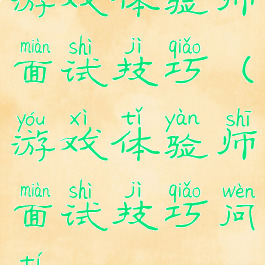 游戏体验师
miàn shì jì qiǎo
面试技巧（
yóu xì tǐ yàn shī
游戏体验师
miàn shì jì qiǎo wèn
面试技巧问
tí